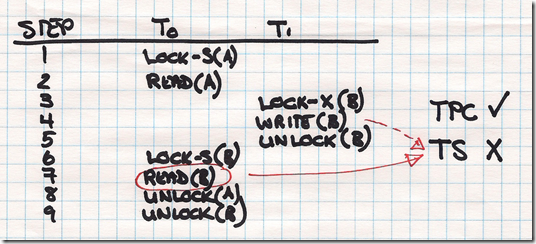 STEP T0 T1
1 LOCK-S(A)
2 READ(A)
3 LOCK-X(B)
4 WRITE(B)
5 UNLOCK(B)
6 LOCK-S(B)
7 READ(B)
8 UNLOCK(A)
9 UNLOCK(B)
TPC ✓
TS X